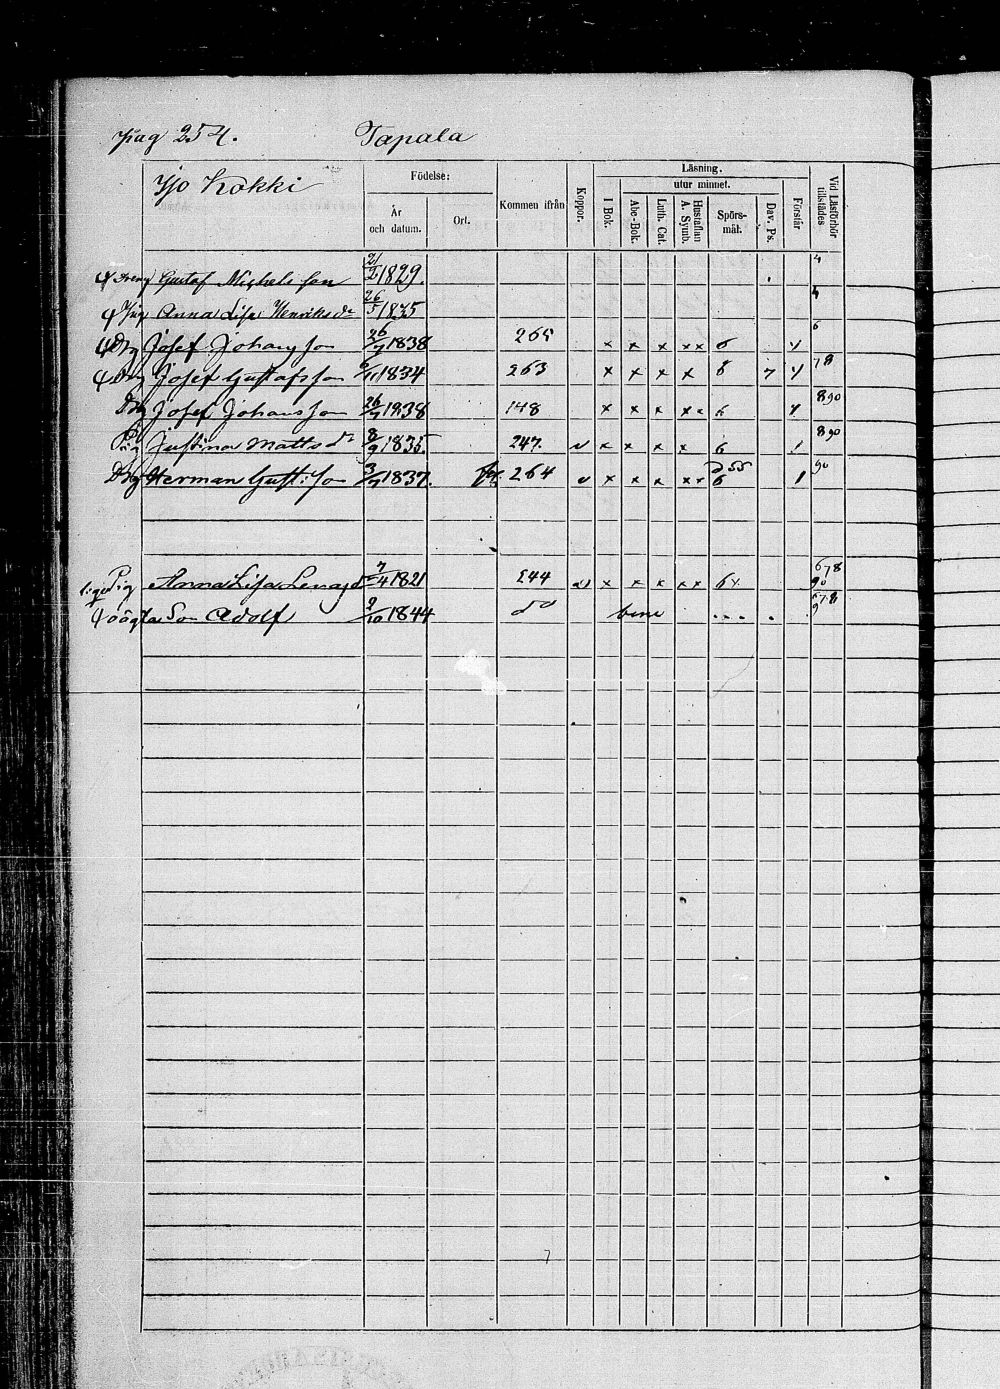 pag 254. Tapala
Yjo Kokki
Födelse:
År och datum.
Ort.
Kommen ifrån
Koppor.
Läsning.
utur minnet.
I Bok.
Abc-Bok.
Luth. Cat.
Hustaflan A. Symb.
Spörs-mål.
Dav. Ps.
Förstår
Vid Läsförhör tillstädes
Dreng Gustaf Michelsson 21/2 1829. 4
Pig Anna Lisa Henriksdr 26/5 1835 4
Drg Josef Johansson 26/7 1838 265 x x x xx 6 6
Drg Josef Gustafsson 1834 263 x x x x 6 7 78
Drg Josef Johansson 26/7 1938 148 x x x x 6 890
Pig Justina Mattsdr 8/9 1835. 247. v x x x x 6 1 890
Drg Herman Gust:son 3/7 1837. 264 v x x x xx 6 1 90
Pig Anna Lisa 7/4 1821 244 v x x x xx 6 678 90
oägta Son Adolf 2/10 1844 do bene 678 9